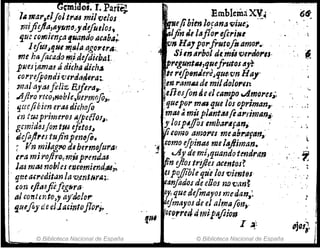 Gemidos. I. Parte
la mar, el sol tras mil velos
mi fiesta, ayuno, y desuelos,
que comiença quando acaba:
Iesus, que mula agorera.
me ha sacado mi desdicha!
pues jamas à dicha dicha
correspondi verdadera:
mal aya feliz Esfera,
Astro roco, noble, hermoso,
que si bien eras dichoso
en tus primeros aspectos,
gemidos son tus efetos,
desastres tu fin penoso.
Vn milagro de hermosura
era mi rostro, mis prendas
las mas nobles encomiendas,
que acreditan la ventura:
con esta fiesegura
al contento, y ay dolor
que soy de el Iacinto flor,
que
Emblema XV.
66
que si bien loçana vive,
al fin de la flor escrive
vn Hay por fruto su amor.
Si en arbol de mis verdores
pregunta, que frutos ay?
te responderè, que vn Hay
en ramas de mil dolores:
estos son de el campo Amores;
que por mas que los opriman,
mas à mis plantas se arriman,
y los passos embaraçan,
si como amores me abraçan,
como espinas me lastiman.
Ay de mi, quando tendran
fin estos tristes acentos?
es possible que los vientos
cansados de ellos no van?
ay, que desmayos me dan,
desmayos de el alma son,
socorred à mi passion
I 2
ojos,
© Biblioteca Nacional de España
© Biblioteca Nacional de España